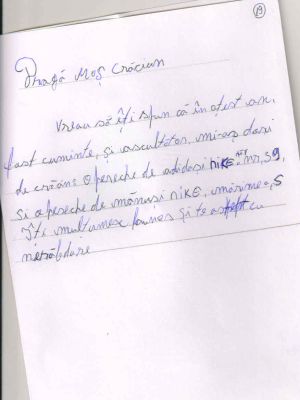 13
Dragă Moș Crăciun
Vreau să îți spun că în acest an,
fost cuminte, și ascultător, mi-aș dori
de crăciun o pereche de adidași NIKE nr, 39,
Și o pereche de mănuși NIKE, mărimea, S
Îți mulțumex și te aștept cu
nerăbdare